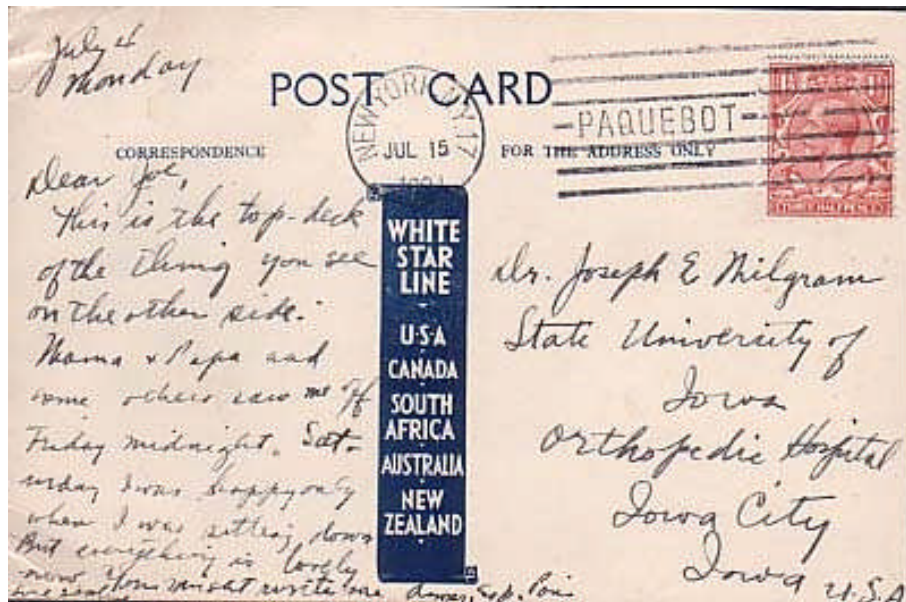 July 4
Monday
POST CARD
NEW YORK, N.Y. 17
JUL 15
PAQUEBOT
CORRESPONDENCE
FOR THE ADDRESS ONLY
Dear Joe,
This is the top-deck
of the thing you see
on the other side.
Mama & Papa and
some others saw me off
Friday midnight. Sat-
urday I was happy only
when I was sitting down
But everything is lovely
now You might write me
WHITE
STAR
LINE
U·S·A
CANADA
SOUTH
AFRICA
AUSTRALIA
NEW
ZEALAND
Dr. Joseph E Milgram
State University of
Iowa
Orthopedic Hospital
Iowa City
Iowa U.S.A